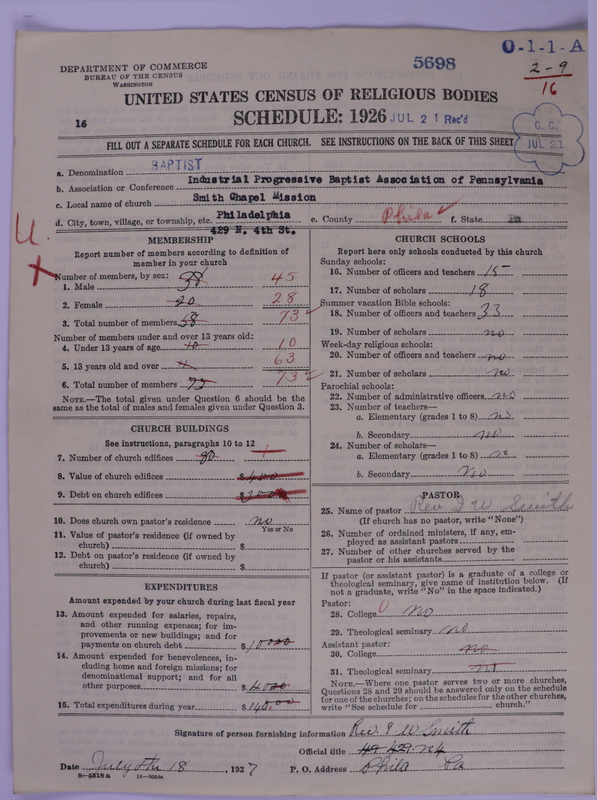 5698
O-1-1-A
2-9
16
DEPARTMENT OF COMMERCE
BUREAU OF THE CENSUS
WASHINGTON
UNITED STATES CENSUS OF RELIGIOUS BODIES
16
SCHEDULE: 1926
JUL 21 Rec'd
C. C.
JUL 21
FILL OUT A SEPARATE SCHEDULE FOR EACH CHURCH. SEE INSTRUCTIONS ON THE BACK OF THIS SHEET
a. Denomination BAPTIST
b. Association or Conference Industrial Progressive Baptist Association of Pennsylvania
c. Local name of church Smith Chapel Mission
d. City, town, village, or township, etc. Philadelphia e. County Phila f. State Pa
429 N. 4th St.
U.
X
MEMBERSHIP
Report number of members according to definition of
member in your church
Number of members, by sex:
1. Male 38 45
2. Female 20 28
3. Total number of members 58 73
Number of members under and over 13 years old:
4. Under 13 years of age 10 10
5. 13 years old and over 63
6. Total number of members 73 73
NOTE.—The total given under Question 6 should be the
same as the total of males and females given under Question 3.
CHURCH BUILDINGS
See instructions, paragraphs 10 to 12
7. Number of church edifices
8. Value of church edifices $
9. Debt on church edifices $
10. Does church own pastor's residence no
Yes or No
11. Value of pastor's residence (if owned by
church) $
12. Debt on pastor's residence (if owned by
church) $
EXPENDITURES
Amount expended by your church during last fiscal year
13. Amount expended for salaries, repairs,
and other running expenses; for im-
provements or new buildings; and for
payments on church debt $
14. Amount expended for benevolences, in-
cluding home and foreign missions; for
denominational support; and for all
other purposes $
15. Total expenditures during year $140.00
CHURCH SCHOOLS
Report here only schools conducted by this church
Sunday schools:
16. Number of officers and teachers 15
17. Number of scholars 18
Summer vacation Bible schools:
18. Number of officers and teachers 33
19. Number of scholars no
Week-day religious schools:
20. Number of officers and teachers no
21. Number of scholars no
Parochial schools:
22. Number of administrative officers no
23. Number of teachers—
a. Elementary (grades 1 to 8) no
b. Secondary no
24. Number of scholars—
a. Elementary (grades 1 to 8) no
b. Secondary no
PASTOR
25. Name of pastor Rev I W Smith
(If church has no pastor, write "None")
26. Number of ordained ministers, if any, em-
ployed as assistant pastors
27. Number of other churches served by the
pastor or his assistants
If pastor (or assistant pastor) is a graduate of a college or
theological seminary, give name of institution below. (If
not a graduate, write "No" in the space indicated.)
Pastor:
28. College no
29. Theological seminary no
Assistant pastor:
30. College no
31. Theological seminary no
NOTE.—Where one pastor serves two or more churches,
Questions 28 and 29 should be answered only on the schedule
for one of the churches; on the schedules for the other churches,
write "See schedule for church."
Signature of person furnishing information Rev. I W Smith
Official title
Date July th 18, 1927 P. O. Address Phila Pa
8—5518a 11—9054a